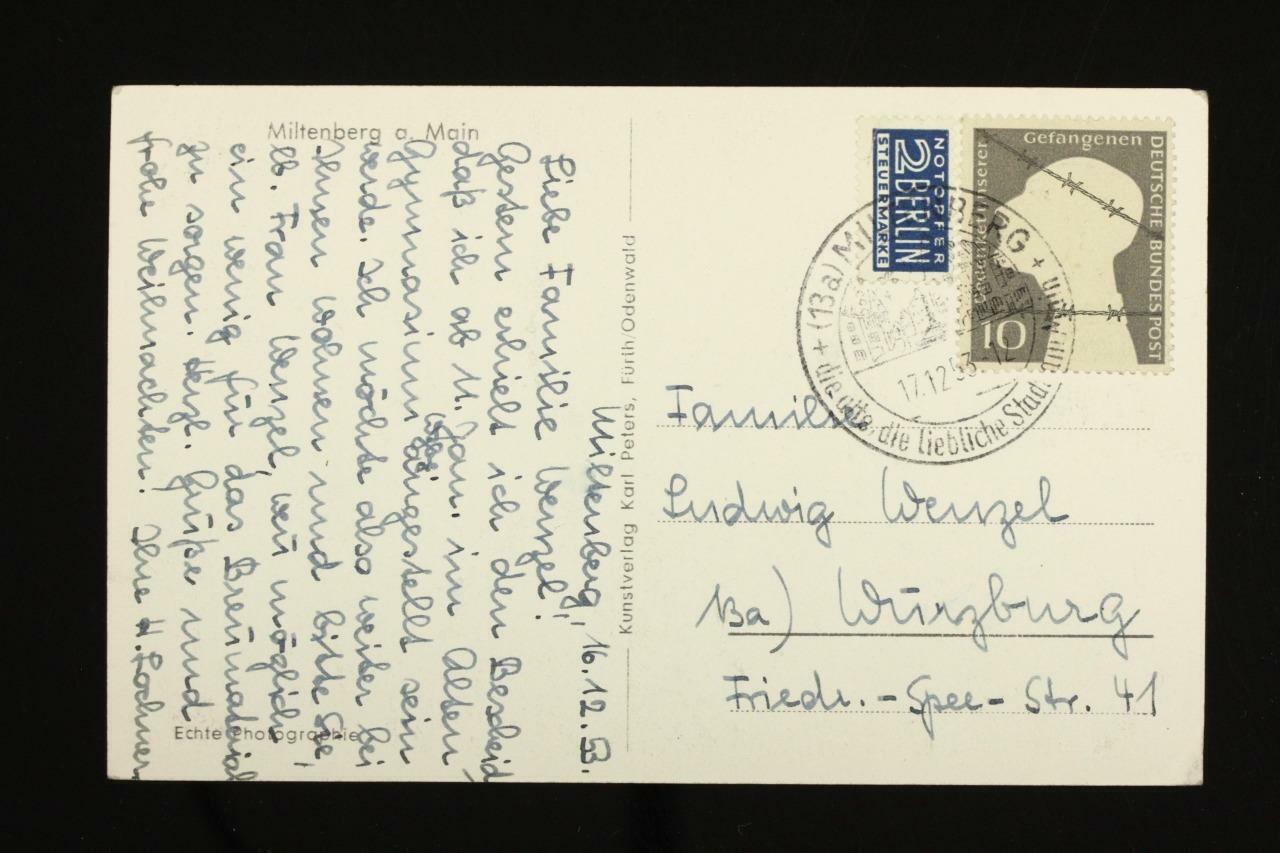 Miltenberg a. Main
Miltenberg, 16.12.53.
Liebe Familie Wenzel!
Gestern erhielt ich den Bescheid,
daß ich ab 11. Jan. im Alten
Gymnasium angestellt sein
werde. Ich möchte also weiter bei
Ihnen wohnen und bitte Sie,
lb. Frau Wenzel, wenn möglich
ein wenig für das Brennmaterial
zu sorgen. Herzl. Grüße und
frohe Weihnachten! Ihre H. Lochner
Echte Photographie
Kunstverlag Karl Peters, Fürth/Odenwald
NOTOPFER
2 BERLIN
STEUERMARKE
Gedenket unserer
Gefangenen
DEUTSCHE BUNDESPOST
10
(13a) MILTENBERG
17.12.53
die alte, die liebliche Stadt
Familie
Ludwig Wenzel
13a) Würzburg
Friedr.-Spee-Str. 41